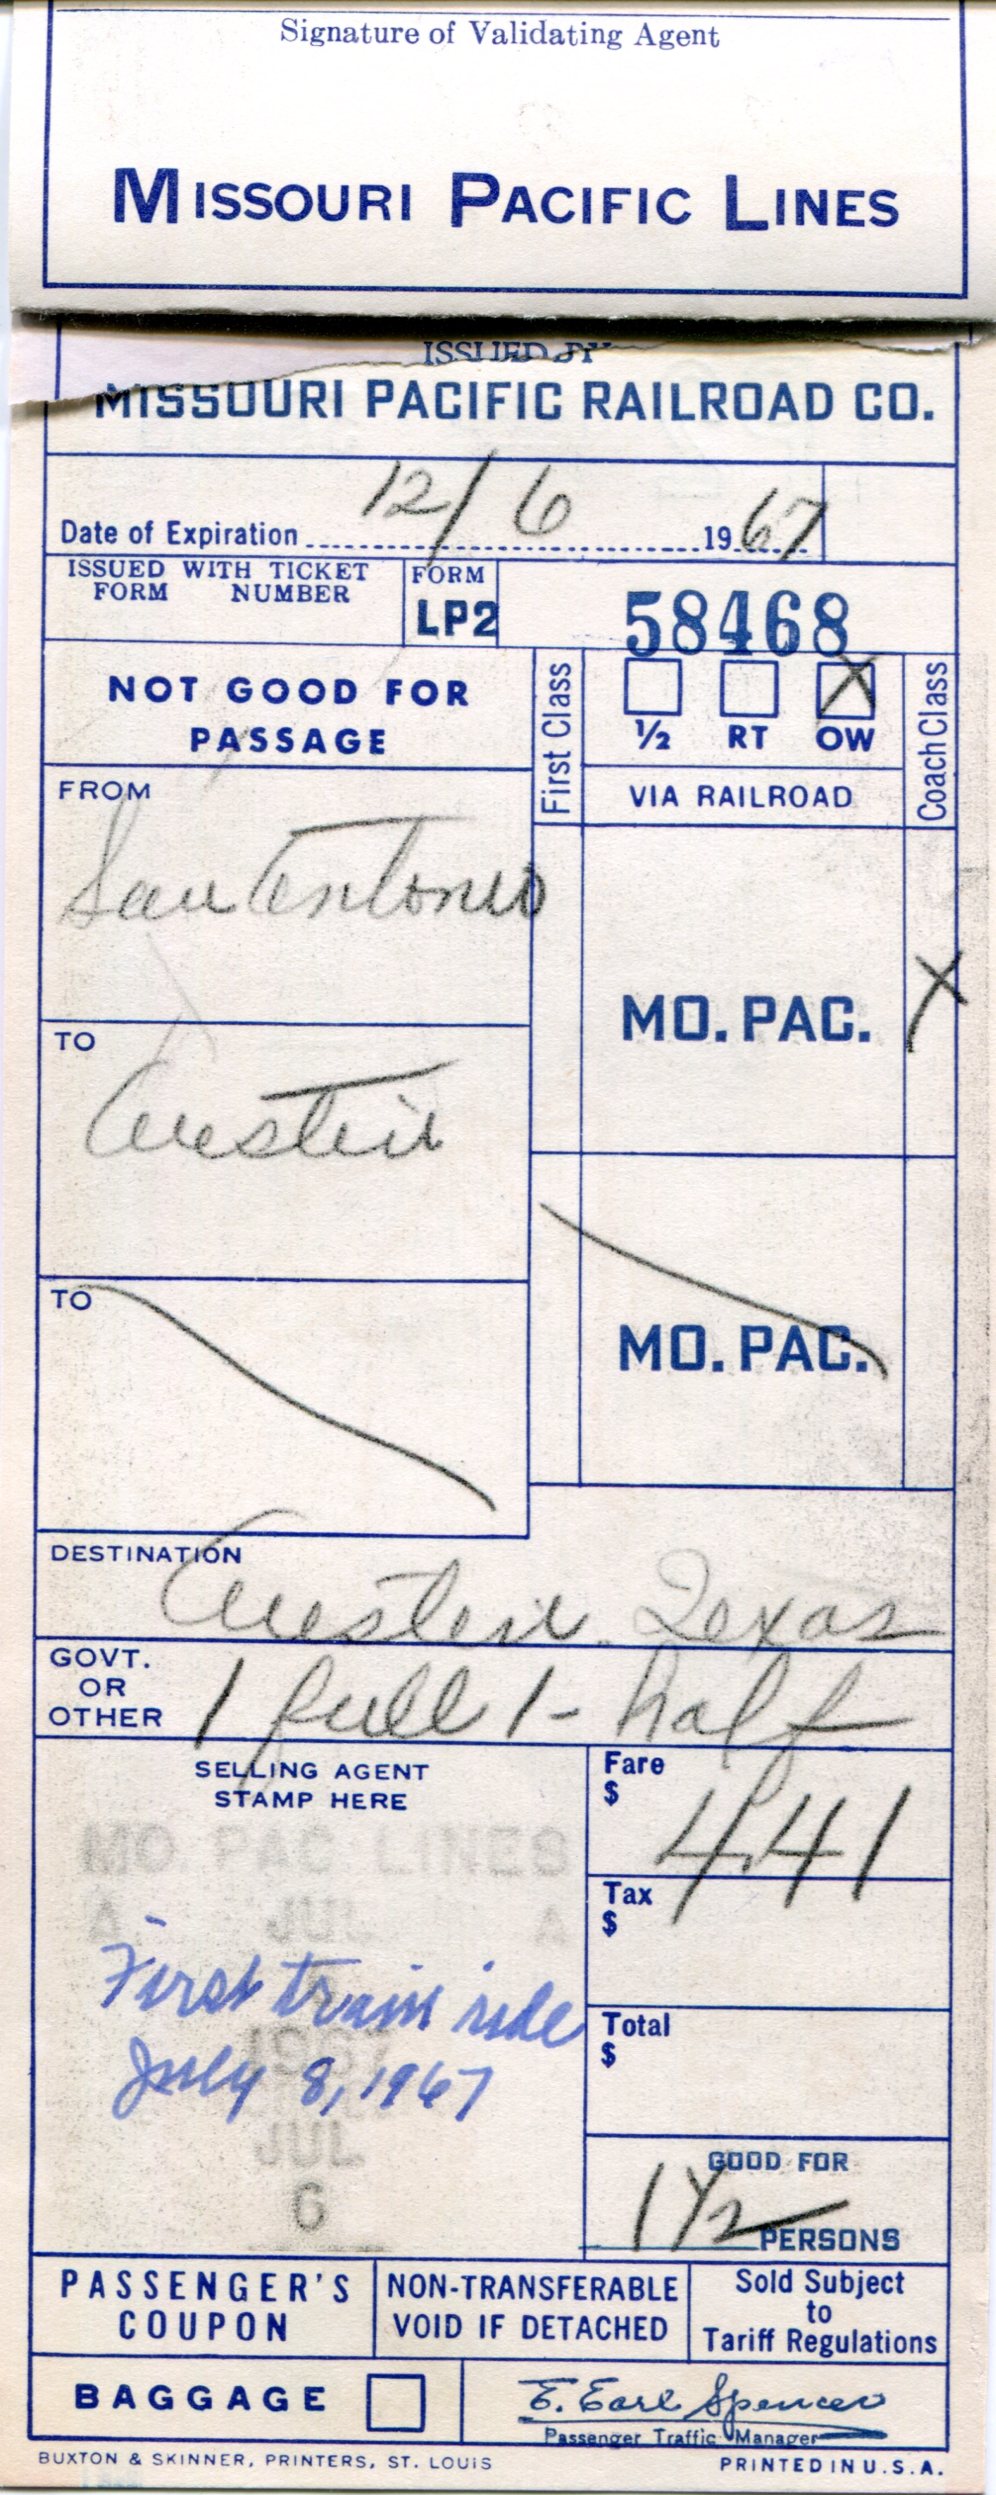 Signature of Validating Agent
MISSOURI PACIFIC LINES
ISSUED BY
MISSOURI PACIFIC RAILROAD CO.
Date of Expiration 12/6 1967
ISSUED WITH TICKET
FORM NUMBER
FORM
LP2
58468
NOT GOOD FOR
PASSAGE
First Class
½ RT OW
X
Coach Class
VIA RAILROAD
FROM
San Antonio
MO. PAC.
X
TO
Austin
MO. PAC.
TO
DESTINATION
Austin. Texas
GOVT.
OR
OTHER
1 full 1 - half
SELLING AGENT
STAMP HERE
MO. PAC LINES
A JUL A
First train ride
1967
July 8, 1967
JUL
6
Fare
$ 4.41
Tax
$
Total
$
GOOD FOR
1 ½ PERSONS
PASSENGER'S
COUPON
NON-TRANSFERABLE
VOID IF DETACHED
Sold Subject
to
Tariff Regulations
BAGGAGE
E. Earl Spencer
Passenger Traffic Manager
BUXTON & SKINNER, PRINTERS, ST. LOUIS
PRINTED IN U.S.A.